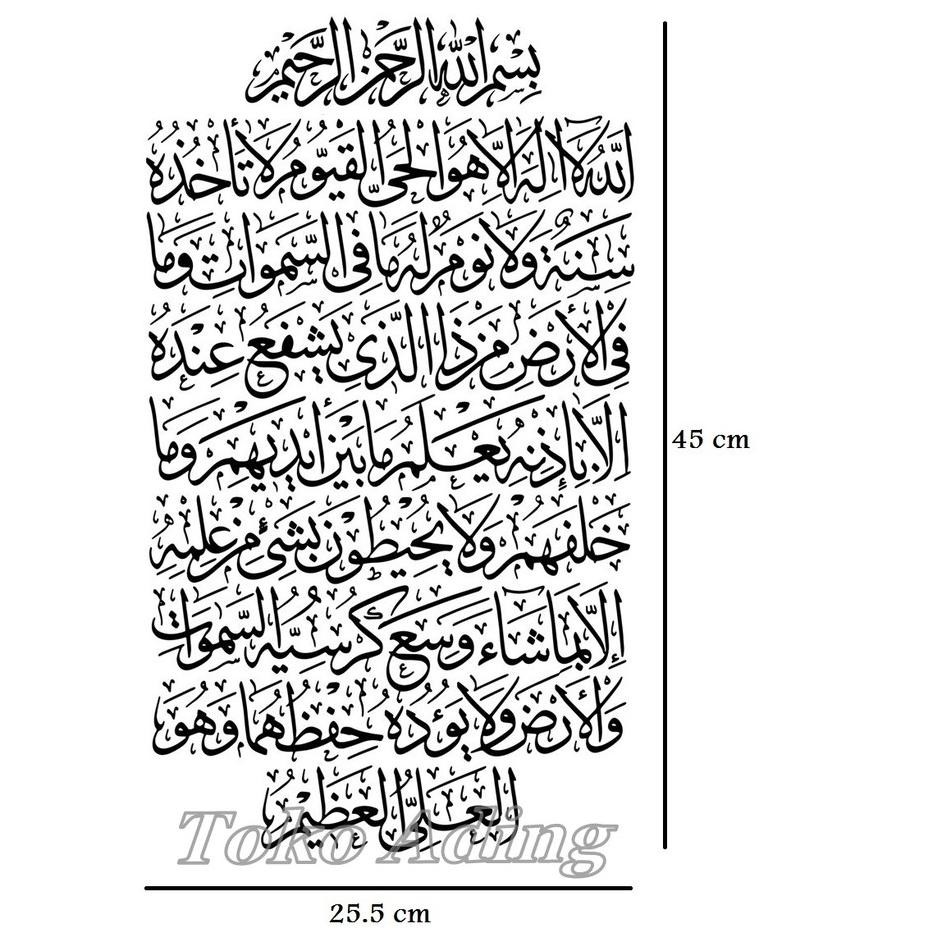 بِسْمِ اللهِ الرَّحْمٰنِ الرَّحِيْمِ
اللهُ لَا اِلٰهَ اِلَّا هُوَ الْحَيُّ الْقَيُّوْمُ لَا تَأْخُذُهُ
سِنَةٌ وَلَا نَوْمٌ لَهُ مَا فِى السَّمٰوَاتِ وَمَا
فِى الْأَرْضِ مَنْ ذَا الَّذِى يَشْفَعُ عِنْدَهُ
اِلَّا بِاِذْنِهِ يَعْلَمُ مَا بَيْنَ اَيْدِيْهِمْ وَمَا
خَلْفَهُمْ وَلَا يُحِيْطُوْنَ بِشَىْءٍ مِنْ عِلْمِهِ
اِلَّا بِمَا شَاءَ وَسِعَ كُرْسِيُّهُ السَّمٰوَاتِ
وَالْأَرْضَ وَلَا يَؤُدُهُ حِفْظُهُمَا وَهُوَ
الْعَلِىُّ الْعَظِيْمُ
Toko Ading
45 cm
25.5 cm